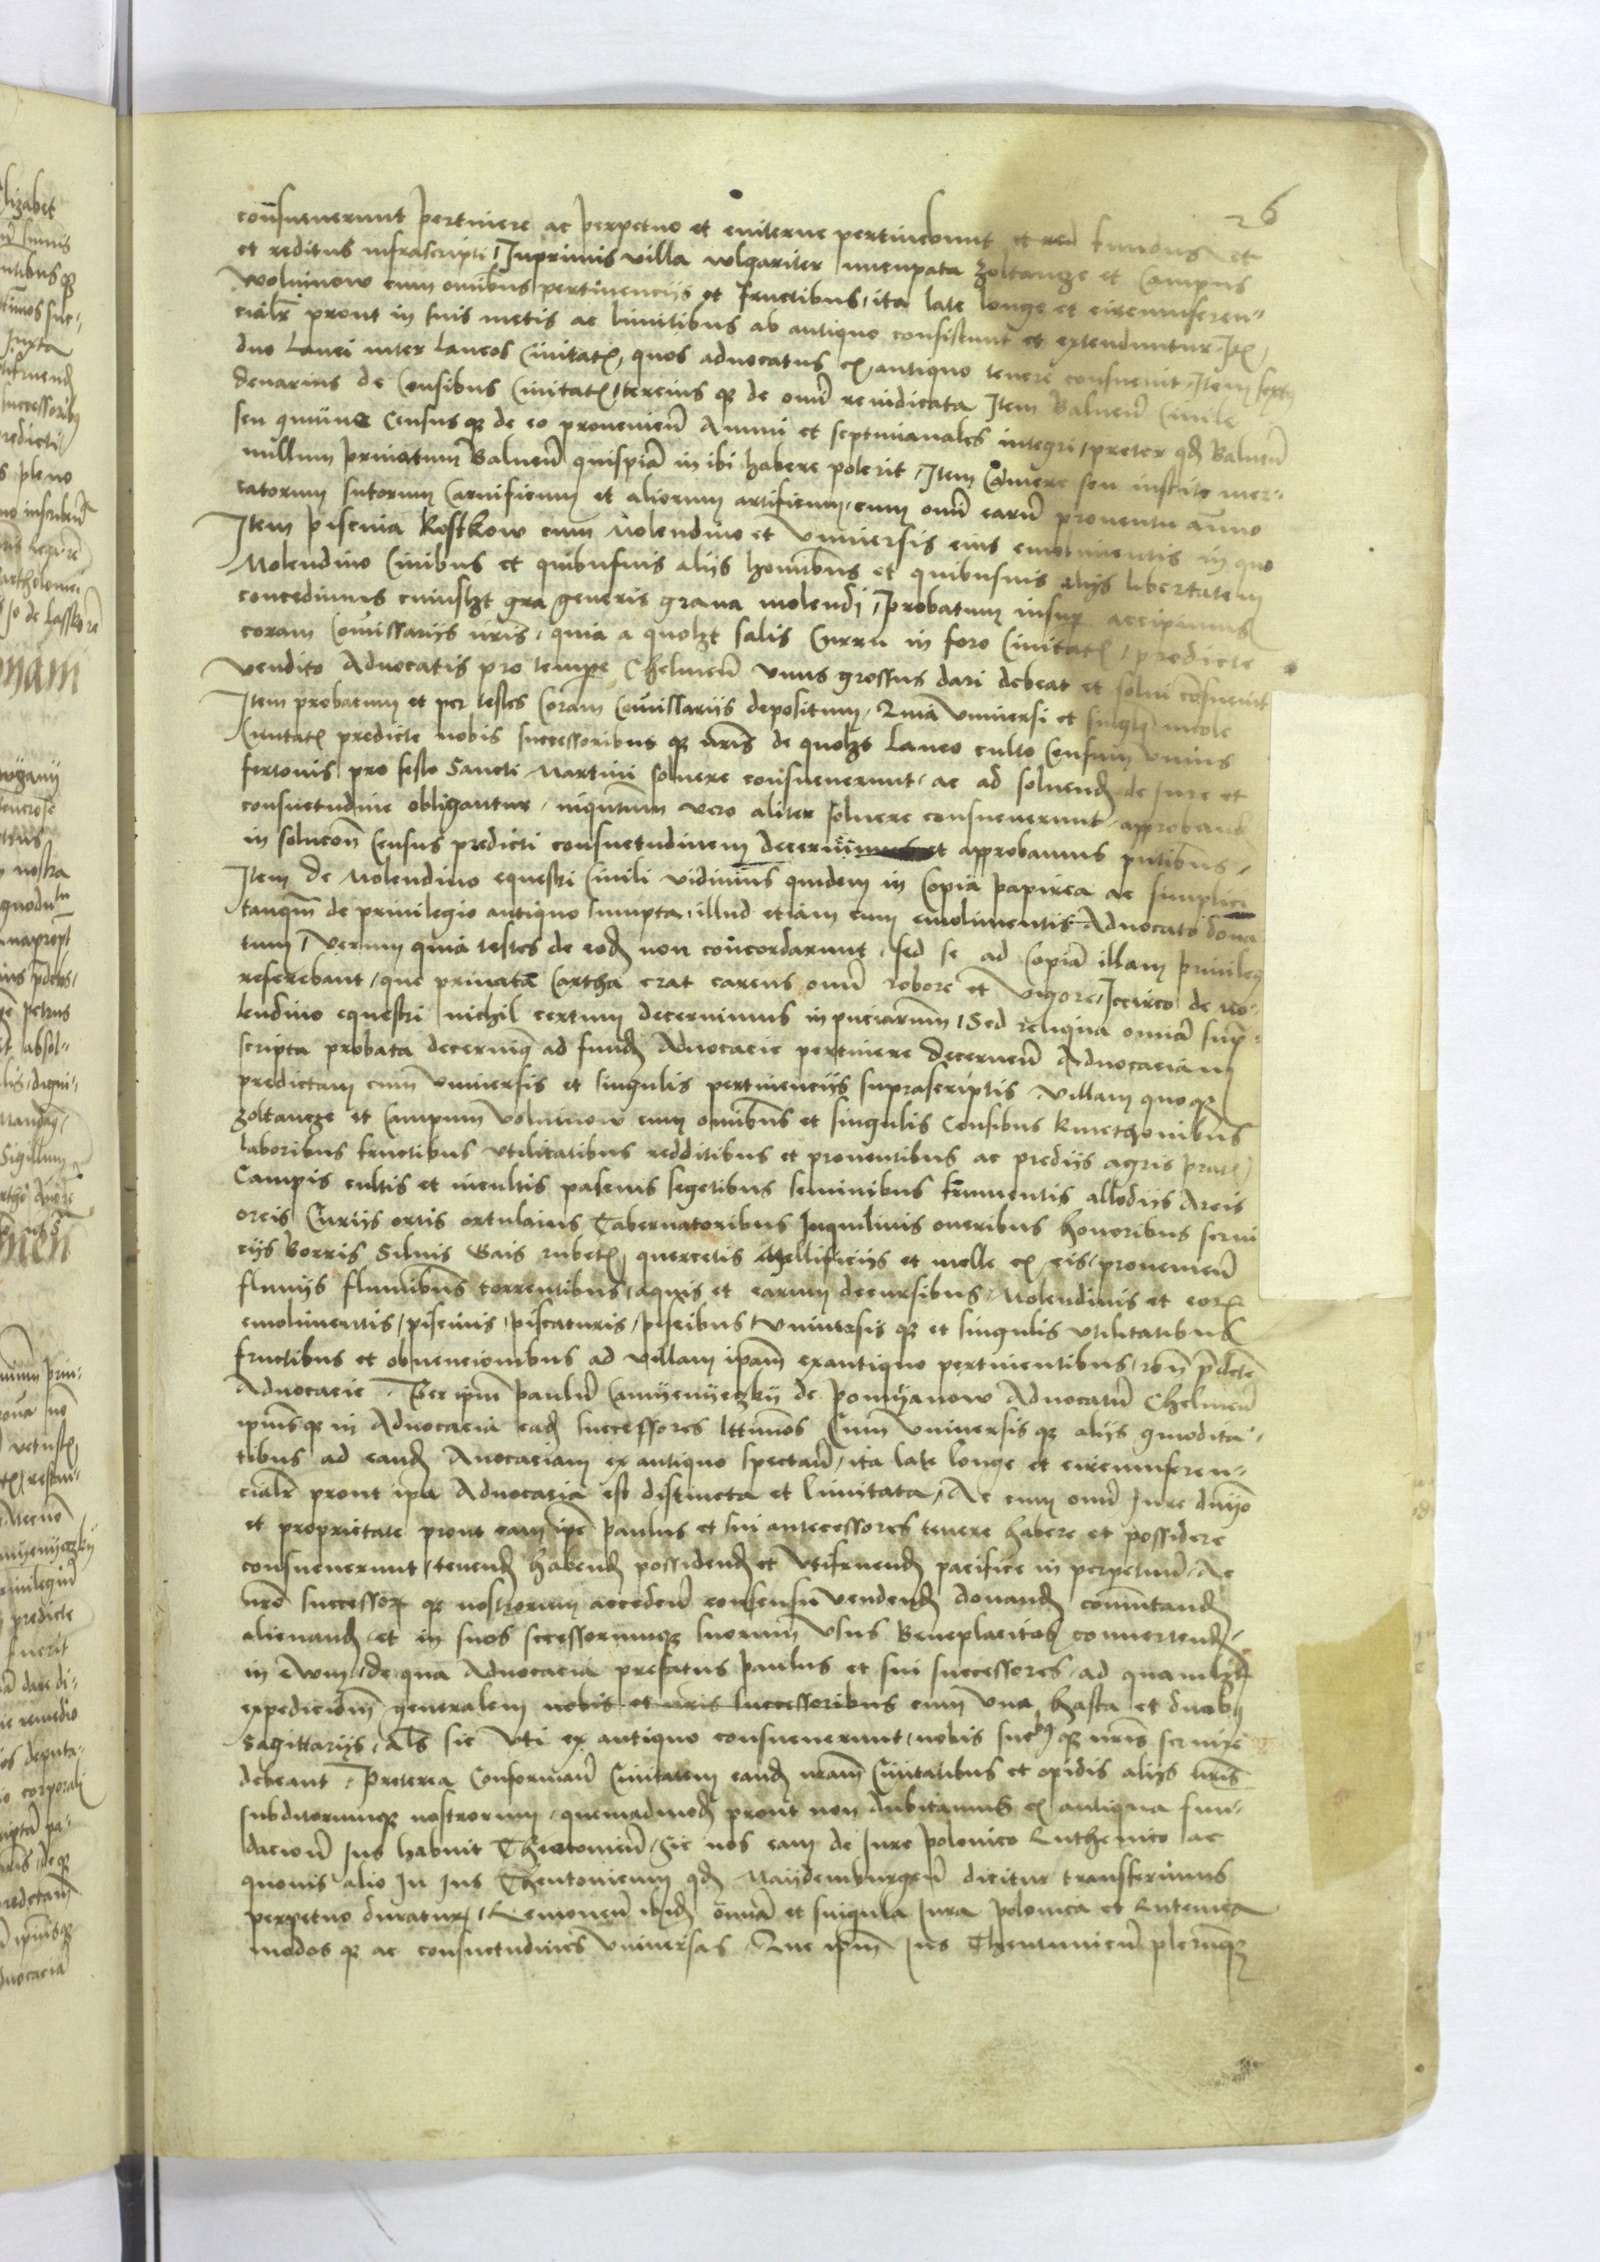 26
consueverunt pertinere ac perpetuo et eviterne pertinebunt et fundus et
et reditus infrascripti Inprimis villa wlgariter nuncupata Zoltancze et Campus
Woluinow cum omibus pertinencijs et fructibus, ita late longe et circumferen-
cialr prout in suis metis ac limitibus ab antiquo consistunt et extenduntur
duo Lanei inter Laneos Civitatis, quos advocatus ex antiquo tenere consuevit, Item sextus
denarius de Censibus Civitatis, tercius qz de omi re iudicata Item Balneu Civile
seu Census qz de eo provenien Annui et septimanales integri, preter qd Balneu
nullum privatum Balneu quispia in ibi habere poterit, Item Camere seu institte mer-
catorum sutorum Carnificum et aliorum artificum, cum omi earu proventu anno
Item piscina Kostkow cum Molendino et universis eius emolimentis in quo
Molendino Civibus et quibusvis alijs hominibus et quibusvis alijs libertatem
concedimus cuiuslzt gra generis grana molendi, Probatum insup accipimus
coram Comissarijs nris, quia a quolzt salis Curru in foro Civitatis predicte
vendito Advocatis pro tempe Chelmen unus grossus dari debeat et solvi consuevit
Item probatum et per testes Coram Comissarijs depositum, Quia universi et singuli incole
Civitatis predicte nobis successoribus qz nris de quolzt Laneo culto Censum unius
fertonis pro festo Sancti Martini solvere consueverunt, ac ad solvend de Jure et
consuetudine obligantur, niqutum vero aliter solvere consueverunt, approband
in solucon Census predicti consuetudinem decernimus et approbamus pntibus,
Item de Molendino equestri Civili vidimus quidem in Copia papirea ac simplici
tanqm de privilegio antiquo sumpta, illud etiam cum emolimentis Advocato dona
tum, Verum quia testes de eod non concordarunt, sed se ad Copia illam privilegij
referebant, que privata Cartha erat carens omi robore et vigore, Iccirco de Mo-
lendino equestri nichil certum decernimus in pnciarum, Sed reliqua omia sup-
scripta probata decernimq ad fund Advocacie pertinere decernen Advocaciam
predictam cum universis et singulis pertinencijs suprascriptis villam quoqz
Zoltancze et Campum Woluinow cum omibus et singulis Censibus Kmethonibus
laboribus fructibus utilitatibus redditibus et proventibus ac predijs agris pratis
Campis cultis et incultis pascuis segetibus seminibus frumentis allodijs Areis
oreis Curijs ortis ortulanis Tabernatoribus Inquilinis oneribus honoribus servi
cijs Borris Silvis Gais rubetis quercetis Mellificijs et melle ex eis provenien
fluvijs fluminibus torrentibus, aquis et earum decursibus, Molendinis et eorz
emolimentis, piscinis, piscaturis, piscibus, universis qz et singulis utilitatibus
fructibus et obvencionibus ad villam ipam exantiquo pertinentibus, ron pdcte
Advocacie. Per ipm Paulu Camyenyeczky de Pomyanow Advocatu Chelmen
ipiusqz in Advocacia ead successores lttimos Cum universis qz alijs qmodita-
tibus ad eand Avocaciam ex antiquo spectan, ita late longe et circumferen-
cialr prout ipa Advocacia est distincta et limitata, Ac cum omi Jure dnijo
et proprietate prout eam ipe Paulus et sui antecessores tenere habere et possidere
consueverunt, tenend habend possidend et utifruend pacifice in perpetuu, Ac
nro successorz qz nostrorum acceden consensu vendend donand comutand
alienand et in suos sccessorumqz suorum usus Beneplacitos convertend,
in ewm, de qua Advocacia prefatus Paulus et sui successores, ad quamlzt
expedicionm generalem nobis et nris successoribus cum una hasta et duobus
Sagittarijs, als sic uti ex antiquo consueverunt, nobis succbq qz nris servire
debeant, Preterea Conforman Civitatem eand nram Civitatibus et opidis alijs nris
subditorumqz nostrorum, quemadmod prout non dubitamus ex antiqua fun-
dacion Jus habuit Theotonicu, sic nos eam de Jure Polonico Ruthenico ac
quovis alio In Jus Theutonicum qd Maydemburgen dicitur transferimus
perpetuo duraturz, Removen ibid omia et singula Jura Polonica et Rutenica
modos qz ac consuetudines universas, Que ipm Jus Theutunicu plerumqz